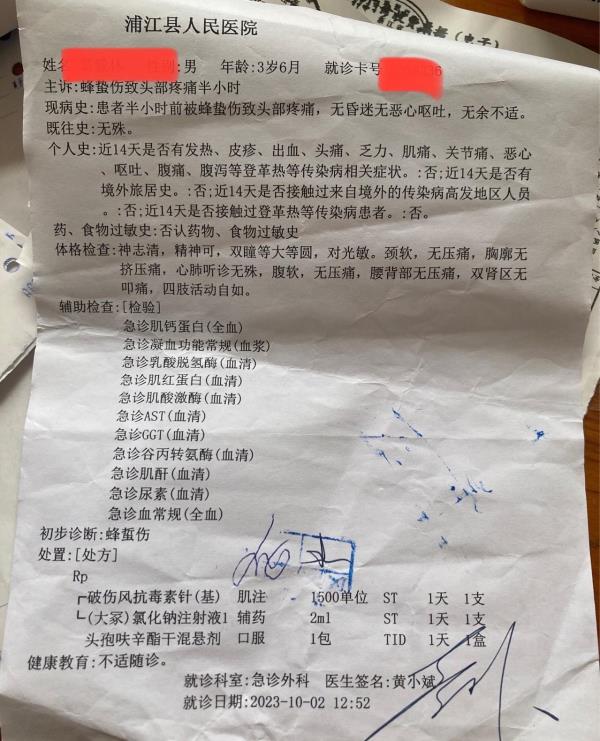 浦江县人民医院
姓名 性别:男 年龄:3岁6月 就诊卡号
主诉:蜂蛰伤致头部疼痛半小时
现病史:患者半小时前被蜂蛰伤致头部疼痛,无昏迷无恶心呕吐,无余不适。
既往史:无殊。
个人史:近14天是否有发热、皮疹、出血、头痛、乏力、肌痛、关节痛、恶心
、呕吐、腹痛、腹泻等登革热等传染病相关症状。:否;近14天是否有
境外旅居史。:否;近14天是否接触过来自境外的传染病高发地区人员
。:否;近14天是否接触过登革热等传染病患者。:否。
药、食物过敏史:否认药物、食物过敏史
体格检查:神志清,精神可,双瞳等大等圆,对光敏。颈软,无压痛,胸廓无
挤压痛,心肺听诊无殊,腹软,无压痛,腰背部无压痛,双肾区无
叩痛,四肢活动自如。
辅助检查:[检验]
急诊肌钙蛋白(全血)
急诊凝血功能常规(血浆)
急诊乳酸脱氢酶(血清)
急诊肌红蛋白(血清)
急诊肌酸激酶(血清)
急诊AST(血清)
急诊GGT(血清)
急诊谷丙转氨酶(血清)
急诊肌酐(血清)
急诊尿素(血清)
急诊血常规(全血)
初步诊断:蜂蜇伤
处置:[处方]
Rp
破伤风抗毒素针(基) 肌注 1500单位 ST 1天 1支
(大冢)氯化钠注射液1 辅药 2ml ST 1天 1支
头孢呋辛酯干混悬剂 口服 1包 TID 1天 1盒
健康教育:不适随诊。
就诊科室:急诊外科 医生签名:黄小斌
就诊日期:2023-10-02 12:52